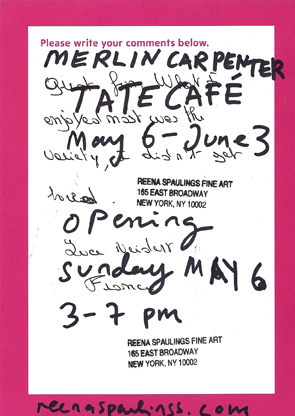 Please write your comments below.
MERLIN CARPENTER
Great fun. What I
TATE CAFÉ
enjoyed most was the
May 6 - June 3
variety, I didn't get
REENA SPAULINGS FINE ART
165 EAST BROADWAY
NEW YORK, NY 10002
bored.
opening
Luca
Sunday MAY 6
France
3-7 pm
REENA SPAULINGS FINE ART
165 EAST BROADWAY
NEW YORK, NY 10002
reenaspaulings.com